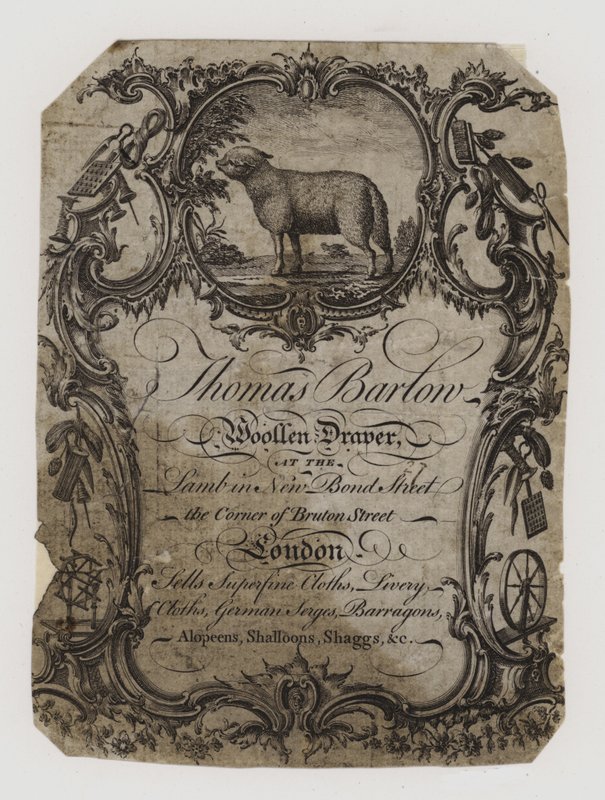 Thomas Barlow
Woollen Draper,
AT THE
Lamb in New Bond Street
the Corner of Bruton Street
London.
Sells Superfine Cloths, Livery
Cloths, German Serges, Barragons,
Alopeens, Shalloons, Shaggs, &c.